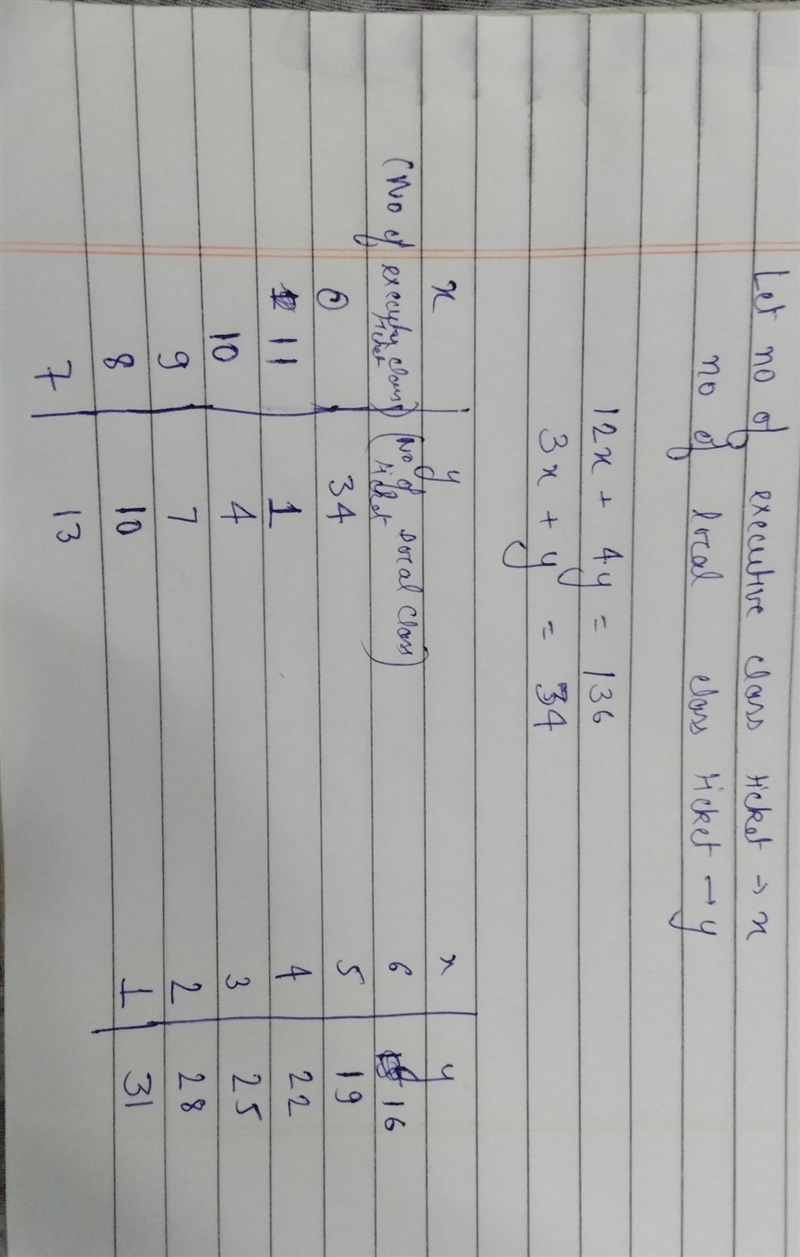 Let no of executive class ticket → x
no of local class ticket → y
12x + 4y = 136
3x + y = 34
x y
(No of class ticket) (No of local class ticket)
0 34
11 1
10 4
9 7
8 10
7 13
x y
6 16
5 19
4 22
3 25
2 28
1 31